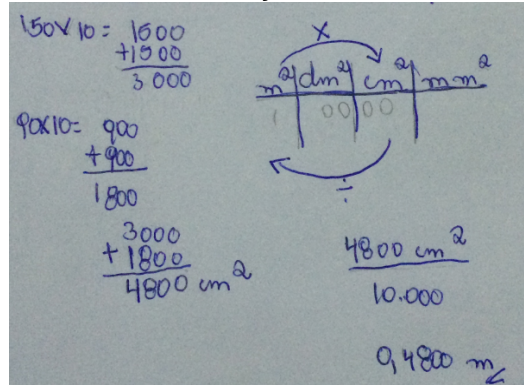 150x10 = 1500
+1500
3000
90x10= 900
+900
1800
3000
+1800
4800 cm²
x
m² dm² cm² mm²
1 00 00
÷
4800 cm²
10.000
0,4800 m